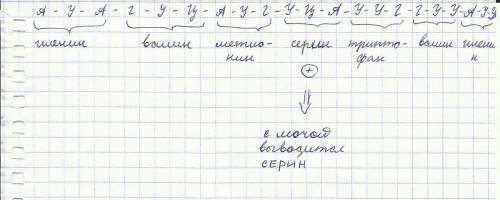 А - У - А - Г - У - Ц - А - У - Г - У - Ц - А - У - У - Г - Г - У - У - А -
гинин валин метио- серин трипто- валин
нин фан н
+
с мочой
выводится
СЕРИН